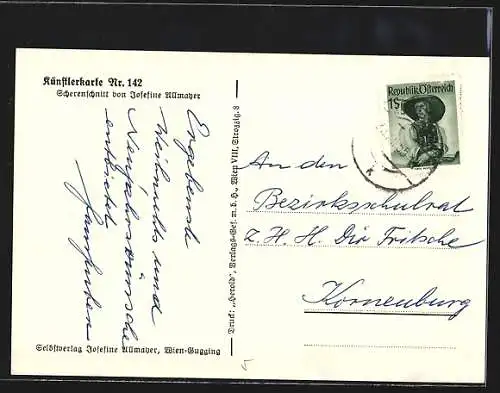 Künstlerkarte Nr. 142
Scherenschnitt von Josefine Allmayer
Ergebenste
Weihnachts und
Neujahrswünsche
entbietet
Selbstverlag Josefine Allmayer, Wien-Gugging
Druck: „Herold", Verlags-Ges. m. b. H., Wien VIII, Strozzig. 8
Republik Österreich
1S
An den
Bezirksschulrat
z. H. H. Dir Fritsche
Korneuburg